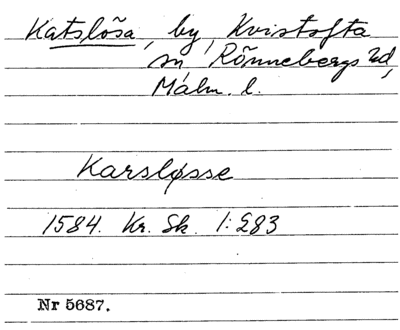 Katslösa, by, Kvistofta
sn, Rönnebergs hd,
Malm. l.
Karsløsse
1584. Kr. Sk. 1:283
Nr 5687.